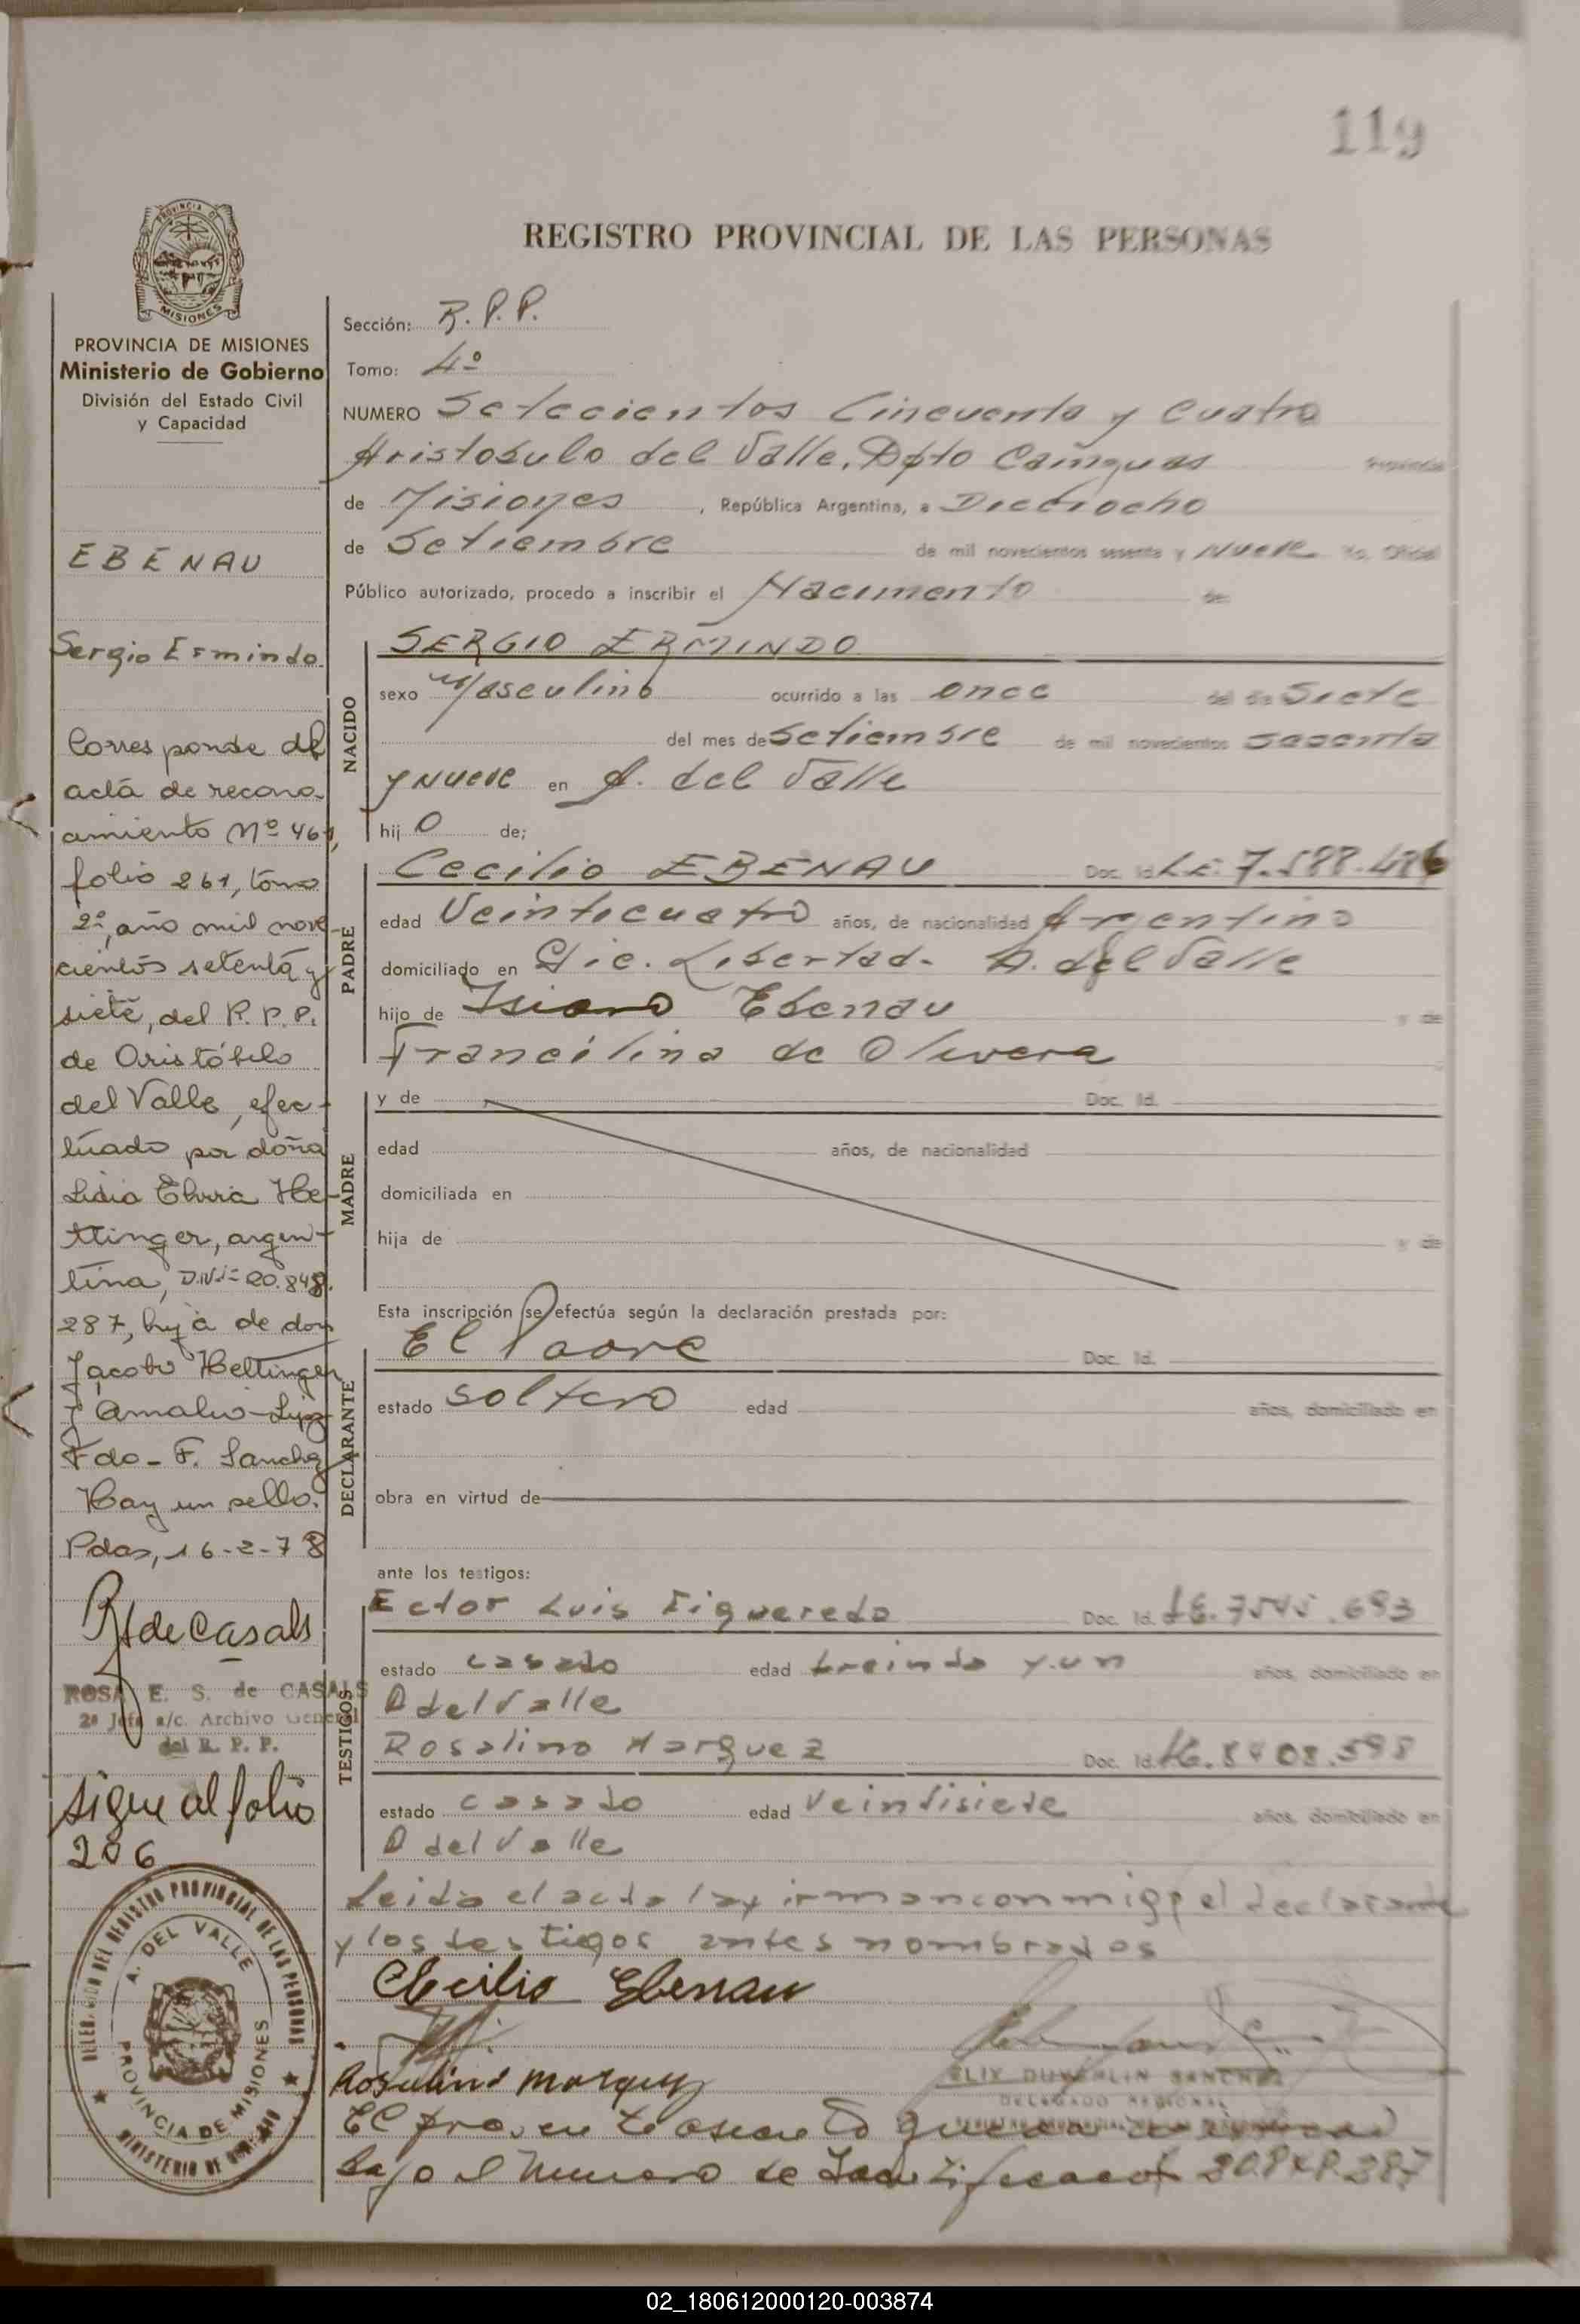 119
REGISTRO PROVINCIAL DE LAS PERSONAS
PROVINCIA DE MISIONES
PROVINCIA DE MISIONES
Ministerio de Gobierno
División del Estado Civil
y Capacidad
EBENAU
Sergio Ermindo
Corresponde al
acta de recono-
cimiento Nº 461,
folio 261, tomo
2º, año mil nove
cientos setenta y
siete, del R. P. P.
de Aristóbulo
del Valle, efec-
tuado por doña
Lidia Elvira He-
ttinger, argen-
tina, D.N.I= 20.848.
287, hija de don
Jacobo Hettinger
y Amalia
Fdo - F. Sanchez
Hay un sello.
Pdas, 16-2-78
RdeCasals
ROSA E. S. de CASALS
2ª Jefe a/c. Archivo General
del R. P. P.
sigue al folio
206
DELEGACION DEL REGISTRO PROVINCIAL DE LAS PERSONAS
A. DEL VALLE
PROVINCIA DE MISIONES
MINISTERIO DE
Sección: R.P.P.
Tomo: 4º
NUMERO Setecientos Cincuenta y Cuatro
Aristobulo del Valle, Dpto Cainguas Provincia
de Misiones, República Argentina, a Dieciocho
de Setiembre de mil novecientos sesenta y Nueve Yo, Oficial
Público autorizado, procedo a inscribir el Nacimento de:
NACIDO
SERGIO ERMINDO
sexo Masculino ocurrido a las once del día Siete
del mes de Setiembre de mil novecientos sesenta
y Nueve en A. del Valle
hij o de;
PADRE
Cecilio EBENAU Doc. Id. L.E. 7.588.486
edad Veinticuatro años, de nacionalidad Argentino
domiciliado en Pic. Libertad- A. del Valle
hijo de Ebenau y de
Francilina de Olivera
MADRE
y de Doc. Id.
edad años, de nacionalidad
domiciliada en
hija de y de
Esta inscripción se efectúa según la declaración prestada por:
DECLARANTE
El Padre Doc. Id.
estado soltero edad años, domiciliado en
obra en virtud de
ante los testigos:
TESTIGOS
Ector Luis Figueredo Doc. Id. LE. 7545.693
estado casado edad treinta y un años, domiciliado en
A del Valle
Rosalino Marquez Doc. Id. LE. 8408.598
estado casado edad Veintisiete años, domiciliado en
A del Valle
Leida el acta la firman conmigo el declarante
y los testigos antes nombrados
Cecilio Ebenau
Rosalino Marquez
DUVERLIN SANCHEZ
DELEGADO REGIONAL
El presente asiento queda
bajo el Numero de 20.848.287
02_180612000120-003874